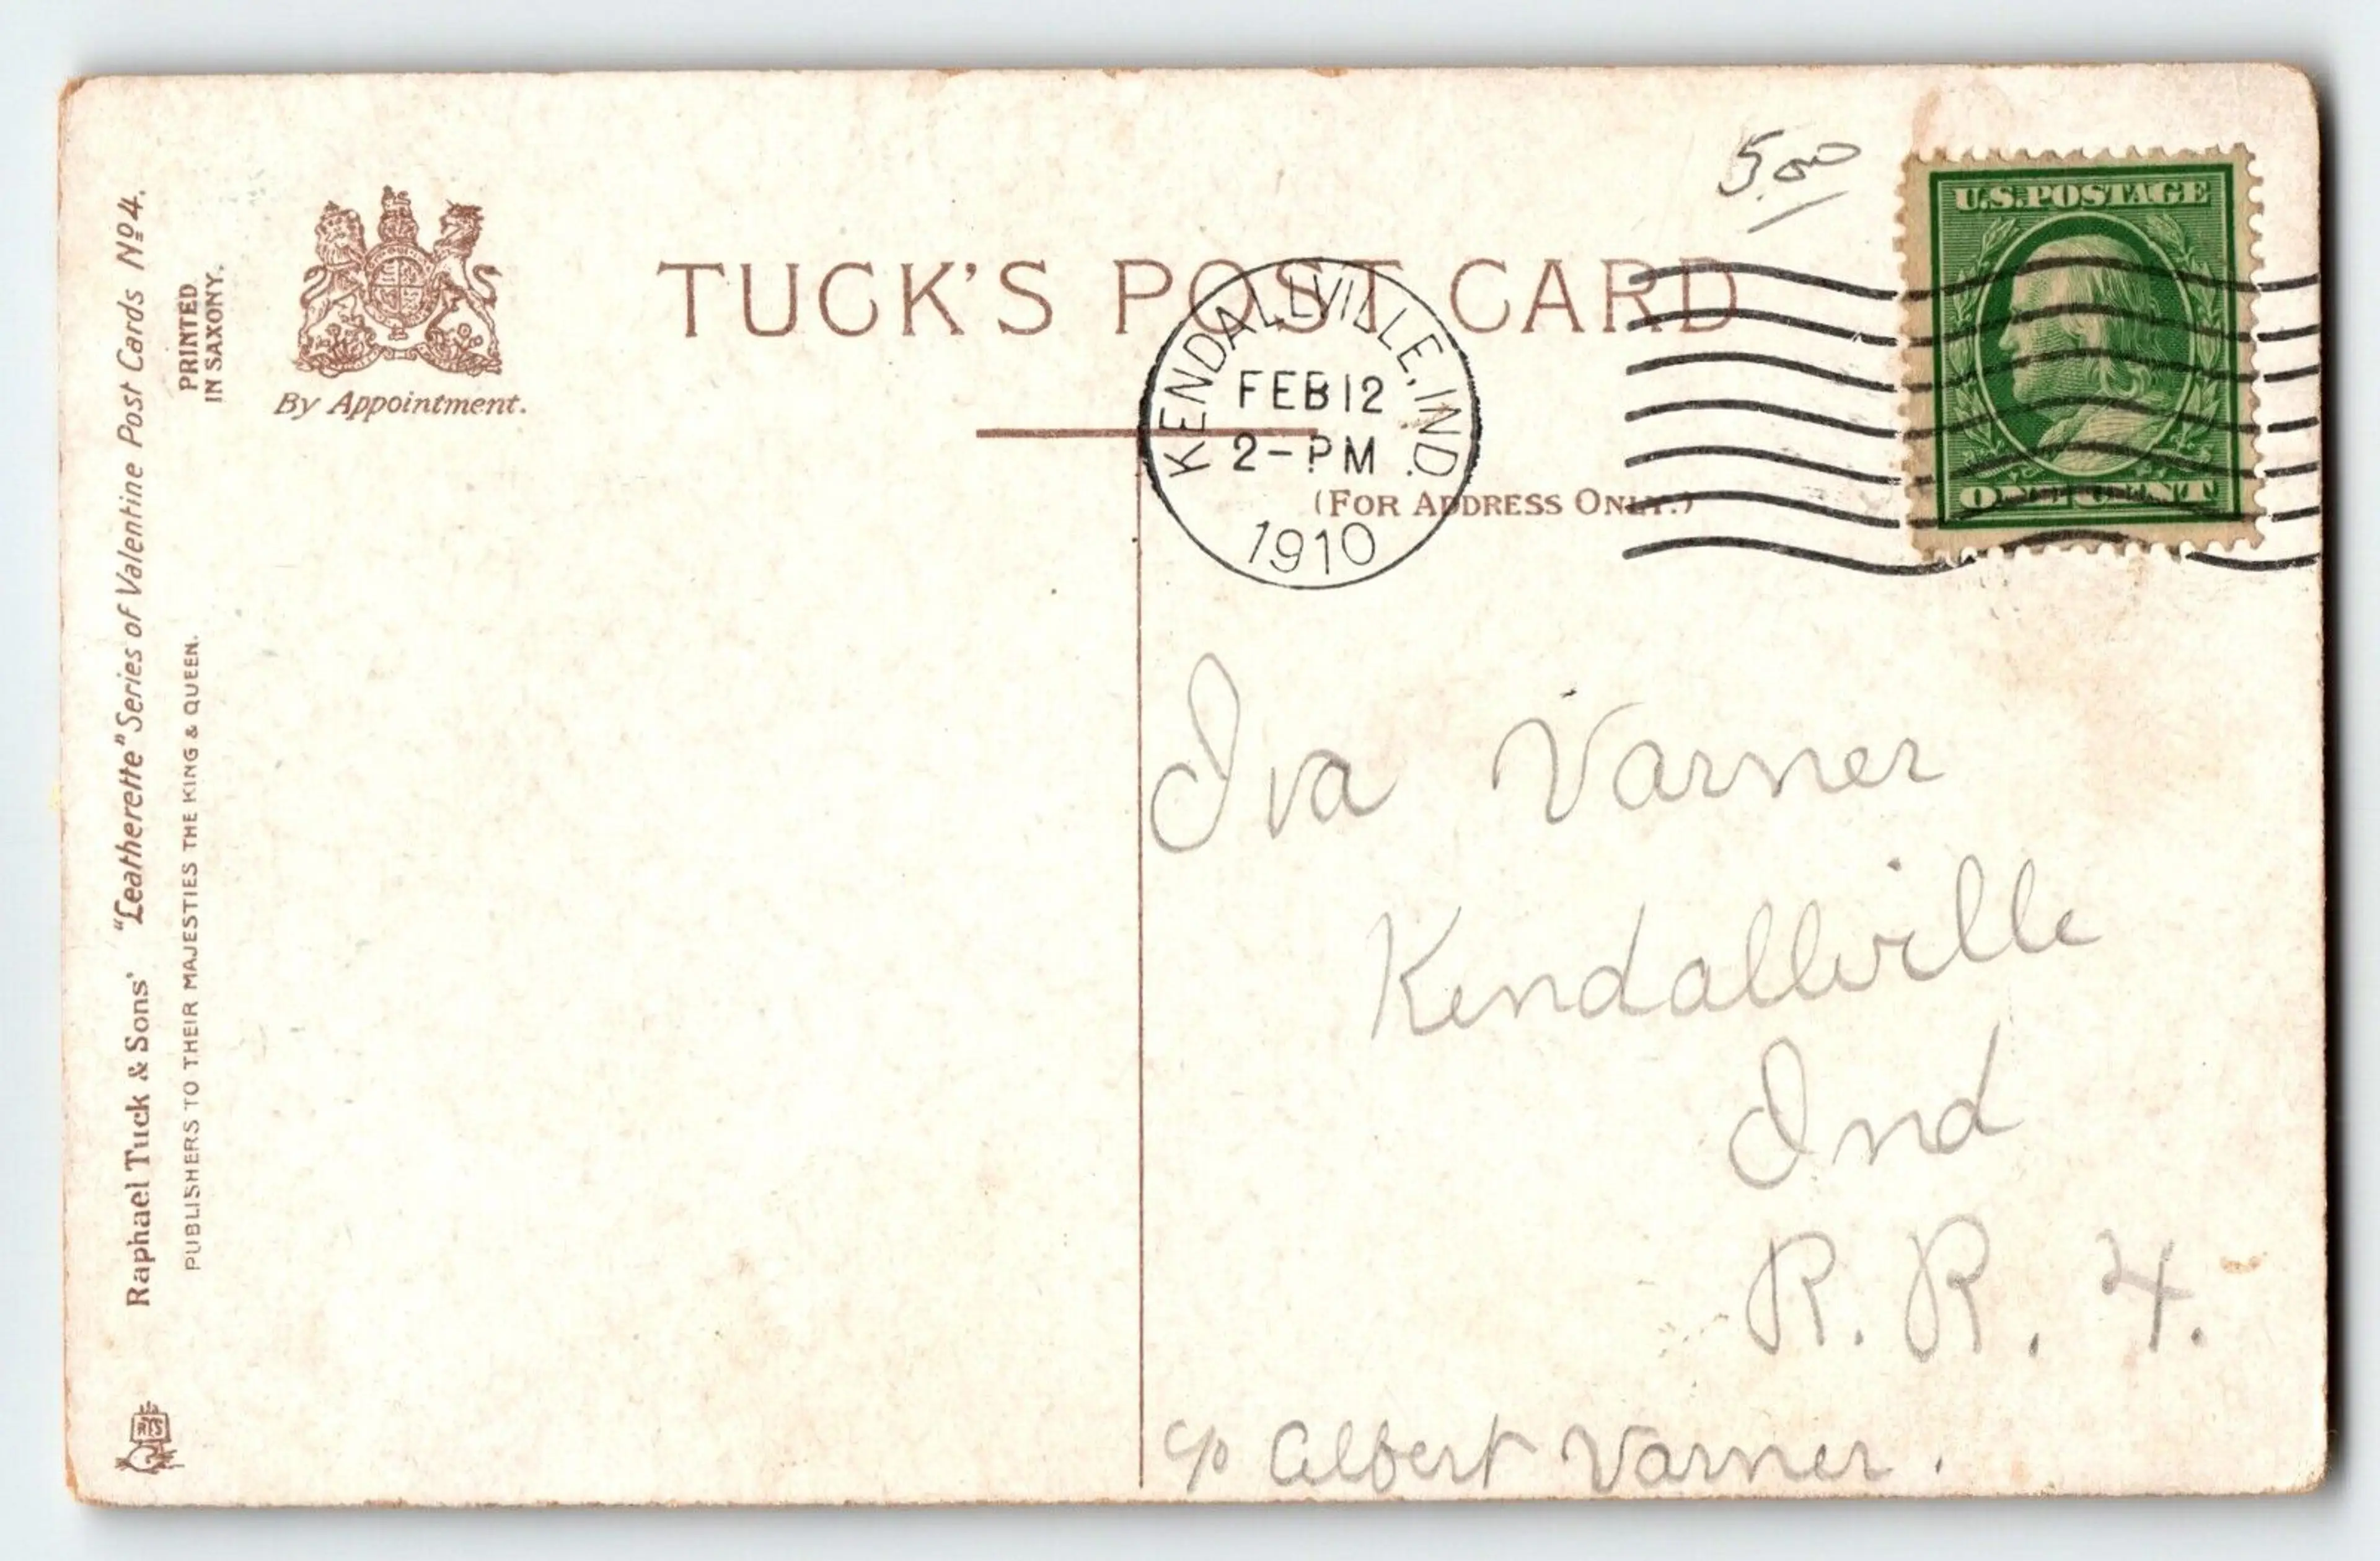 Raphael Tuck & Sons' "Leatherette" Series of Valentine Post Cards Nº 4.
PUBLISHERS TO THEIR MAJESTIES THE KING & QUEEN.
PRINTED
IN SAXONY.
By Appointment.
TUCK'S POST CARD
(FOR ADDRESS ONLY.)
KENDALLVILLE, IND.
FEB 12
2-PM
1910
5.00
U.S. POSTAGE
ONE CENT
Iva Varner
Kendallville
Ind
R. R. 4.
c/o Albert Varner.
RTS